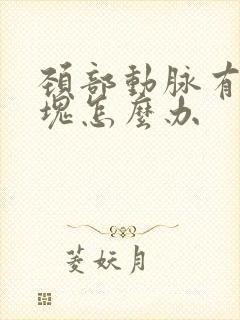 頚部動脉有
塊怎麼办
菱妖月